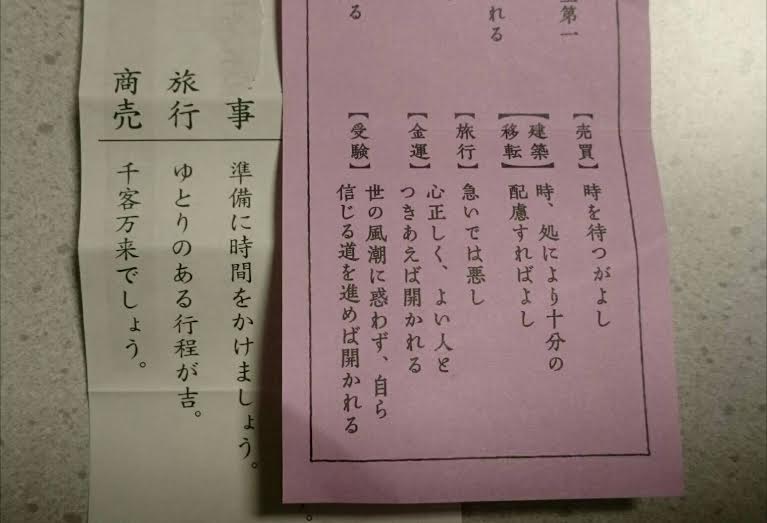 る
れる
第一
【売買】 時を待つがよし
【建築】 時、処により十分の
【移転】 配慮すればよし
【旅行】 急いでは悪し
【金運】 心正しく、よい人と
つきあえば開かれる
【受験】 世の風潮に惑わず、自ら
信じる道を進めば開かれる
事 準備に時間をかけましょう。
旅行 ゆとりのある行程が吉。
商売 千客万来でしょう。